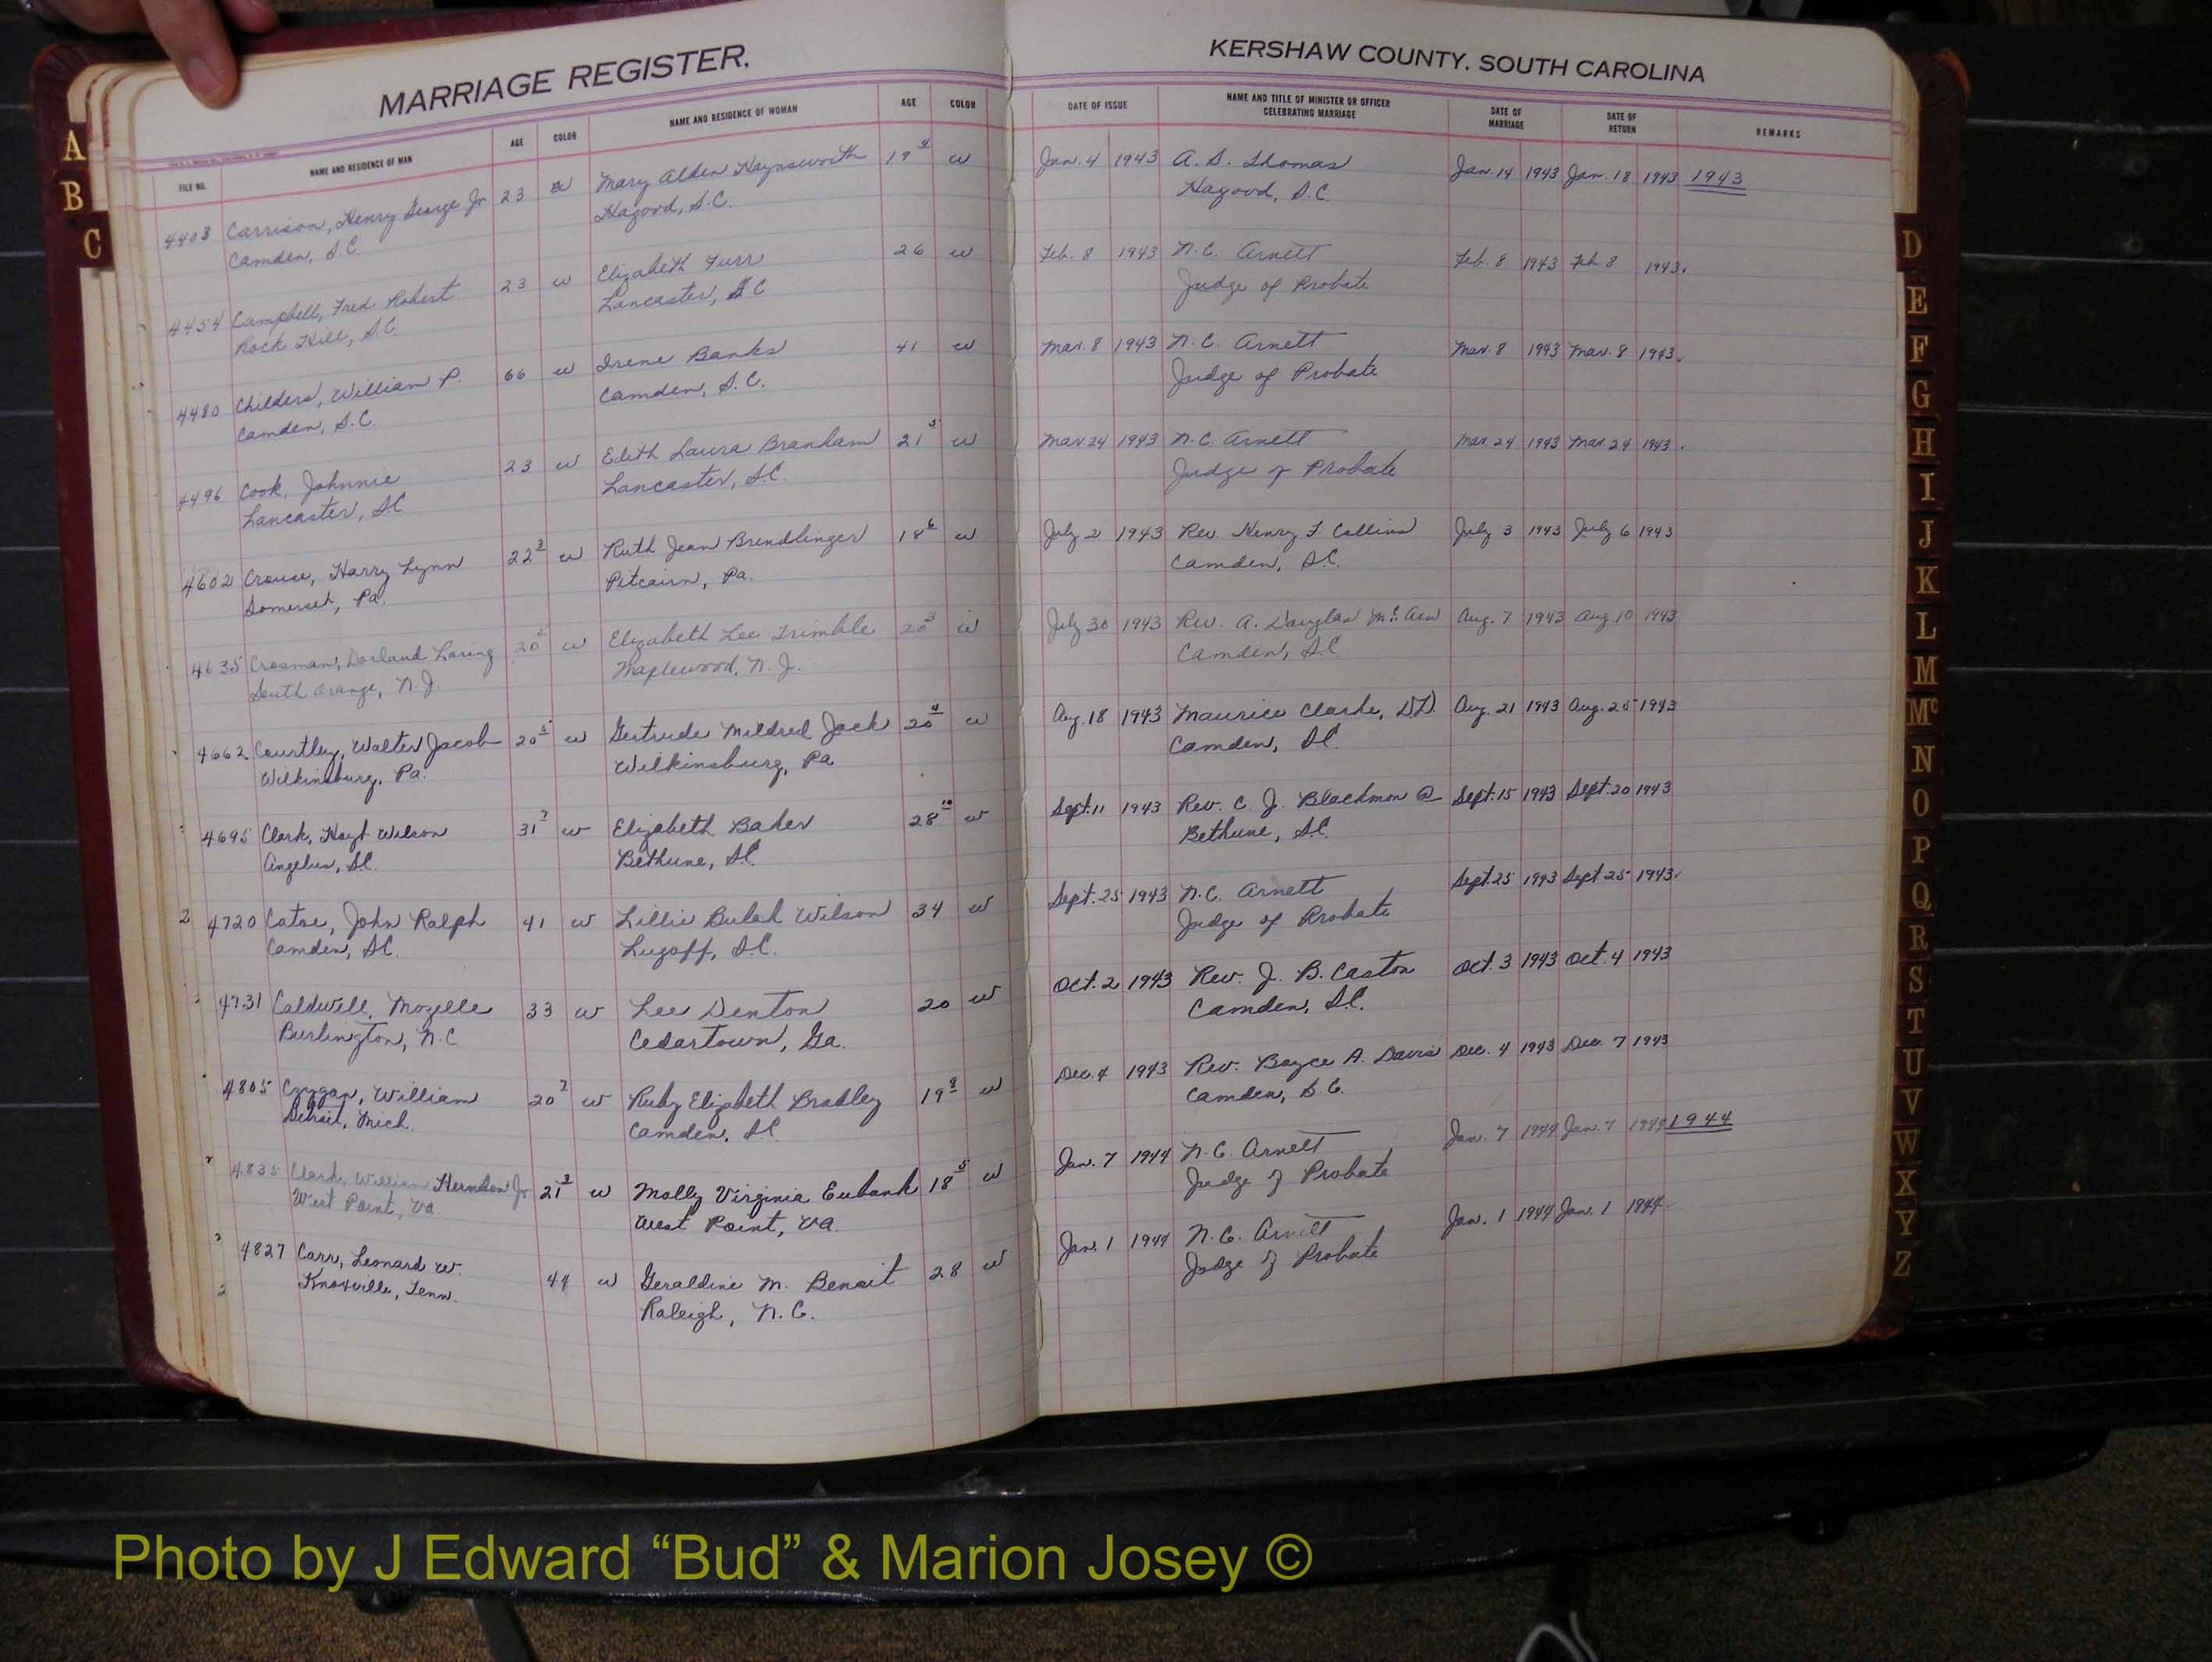 MARRIAGE REGISTER.
KERSHAW COUNTY, SOUTH CAROLINA
FILE NO. NAME AND RESIDENCE OF MAN AGE COLOR NAME AND RESIDENCE OF WOMAN AGE COLOR DATE OF ISSUE NAME AND TITLE OF MINISTER OR OFFICER CELEBRATING MARRIAGE DATE OF MARRIAGE DATE OF RETURN REMARKS
4403 Carrison, Henry George Jr. 23 w Mary Alden Haynsworth 19 4 w Jan. 4 1943 A. S. Thomas Jan. 14 1943 Jan. 18 1943 1943
Camden, S.C. Hagood, S.C. Hagood, S.C.
4454 Campbell, Fred Robert 23 w Elizabeth Furr 26 w Feb. 8 1943 N.C. Arnett Feb. 8 1943 Feb 8 1943.
Rock Hill, S.C. Lancaster, S.C Judge of Probate
4480 Childers, William P. 66 w Irene Banks 41 w Mar. 8 1943 N.C. Arnett Mar. 8 1943 Mar. 8 1943.
Camden, S.C. Camden, S.C. Judge of Probate
4496 Cook, Johnnie 23 w Edith Laura Branham 21 5 w Mar 24 1943 N.C. Arnett Mar. 24 1943 Mar. 24 1943.
Lancaster, SC Lancaster, S.C. Judge of Probate
4602 Crouse, Harry Lynn 22 3 w Ruth Jean Brendlinger 18 6 w July 2 1943 Rev. Henry F Collins July 3 1943 July 6 1943
Somerset, Pa. Pitcairn, Pa. Camden, S.C.
4635 Crosman, Dorland Loring 20 w Elizabeth Lee Trimble 20 3 w July 30 1943 Rev. A. Douglas Aug. 7 1943 Aug 10 1943
South Orange, N.J. Maplewood, N.J. Camden, S.C
4662 Courtley, Walter Jacob 20 5 w Gertrude Mildred Jack 20 4 w Aug. 18 1943 Maurice Clarke, D.D. Aug. 21 1943 Aug. 25 1943
Wilkinsburg, Pa. Wilkinsburg, Pa Camden, SC.
4695 Clark, Hoyt Wilson 31 7 w Elizabeth Baker 28 10 w Sept. 11 1943 Rev. C. J. Blackmon Sept. 15 1943 Sept. 20 1943
Angelus, SC. Bethune, S.C. Bethune, S.C.
2 4720 Catoe, John Ralph 41 w Lillie Bulah Wilson 34 w Sept. 25 1943 N.C. Arnett Sept. 25 1943 Sept 25 1943.
Camden, SC. Lugoff, S.C. Judge of Probate
4731 Caldwell, Mozelle 33 w Lee Denton 20 w Oct. 2 1943 Rev. J. B. Caston Oct. 3 1943 Oct. 4 1943
Burlington, N.C Cedartown, Ga. Camden, S.C.
4805 William 20 7 w Ruby Elizabeth Bradley 19 8 w Dec. 4 1943 Rev. Boyce A. Davis Dec. 4 1943 Dec. 7 1943
Detroit, Mich. Camden, SC Camden, S.C.
4835 Clark, William Herndon Jr 21 3 w Molly Virginia Eubank 18 5 w Jan. 7 1944 N.C. Arnett Jan. 7 1944 Jan. 7 1944 1944
West Point, Va West Point, Va. Judge of Probate
4827 Carr, Leonard W. 44 w Geraldine M. Benoit 28 w Jan. 1 1944 N.C. Arnett Jan. 1 1944 Jan. 1 1944
Knoxville, Tenn. Raleigh, N.C. Judge of Probate
A
B
C
D
E
F
G
H
I
J
K
L
M
Mc
N
O
P
Q
R
S
T
U
V
W
X
Y
Z
Photo by J Edward “Bud” & Marion Josey ©